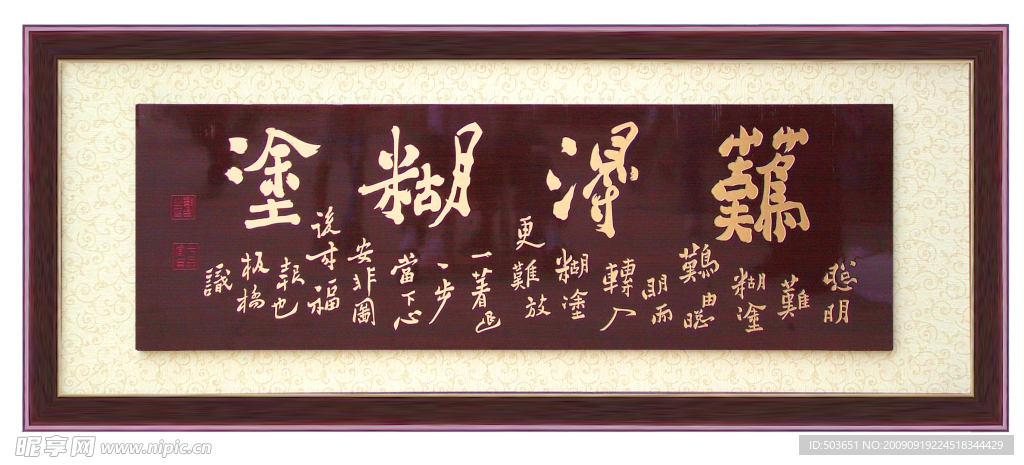 難得糊塗
聰明
難
糊塗
難由聰
明而
轉入
糊塗
更難放
一著退
一步
當下心
安非圖
後來福
報也
板橋
識
昵享网 www.nipic.cn
ID:503651 NO:20090919224518344429